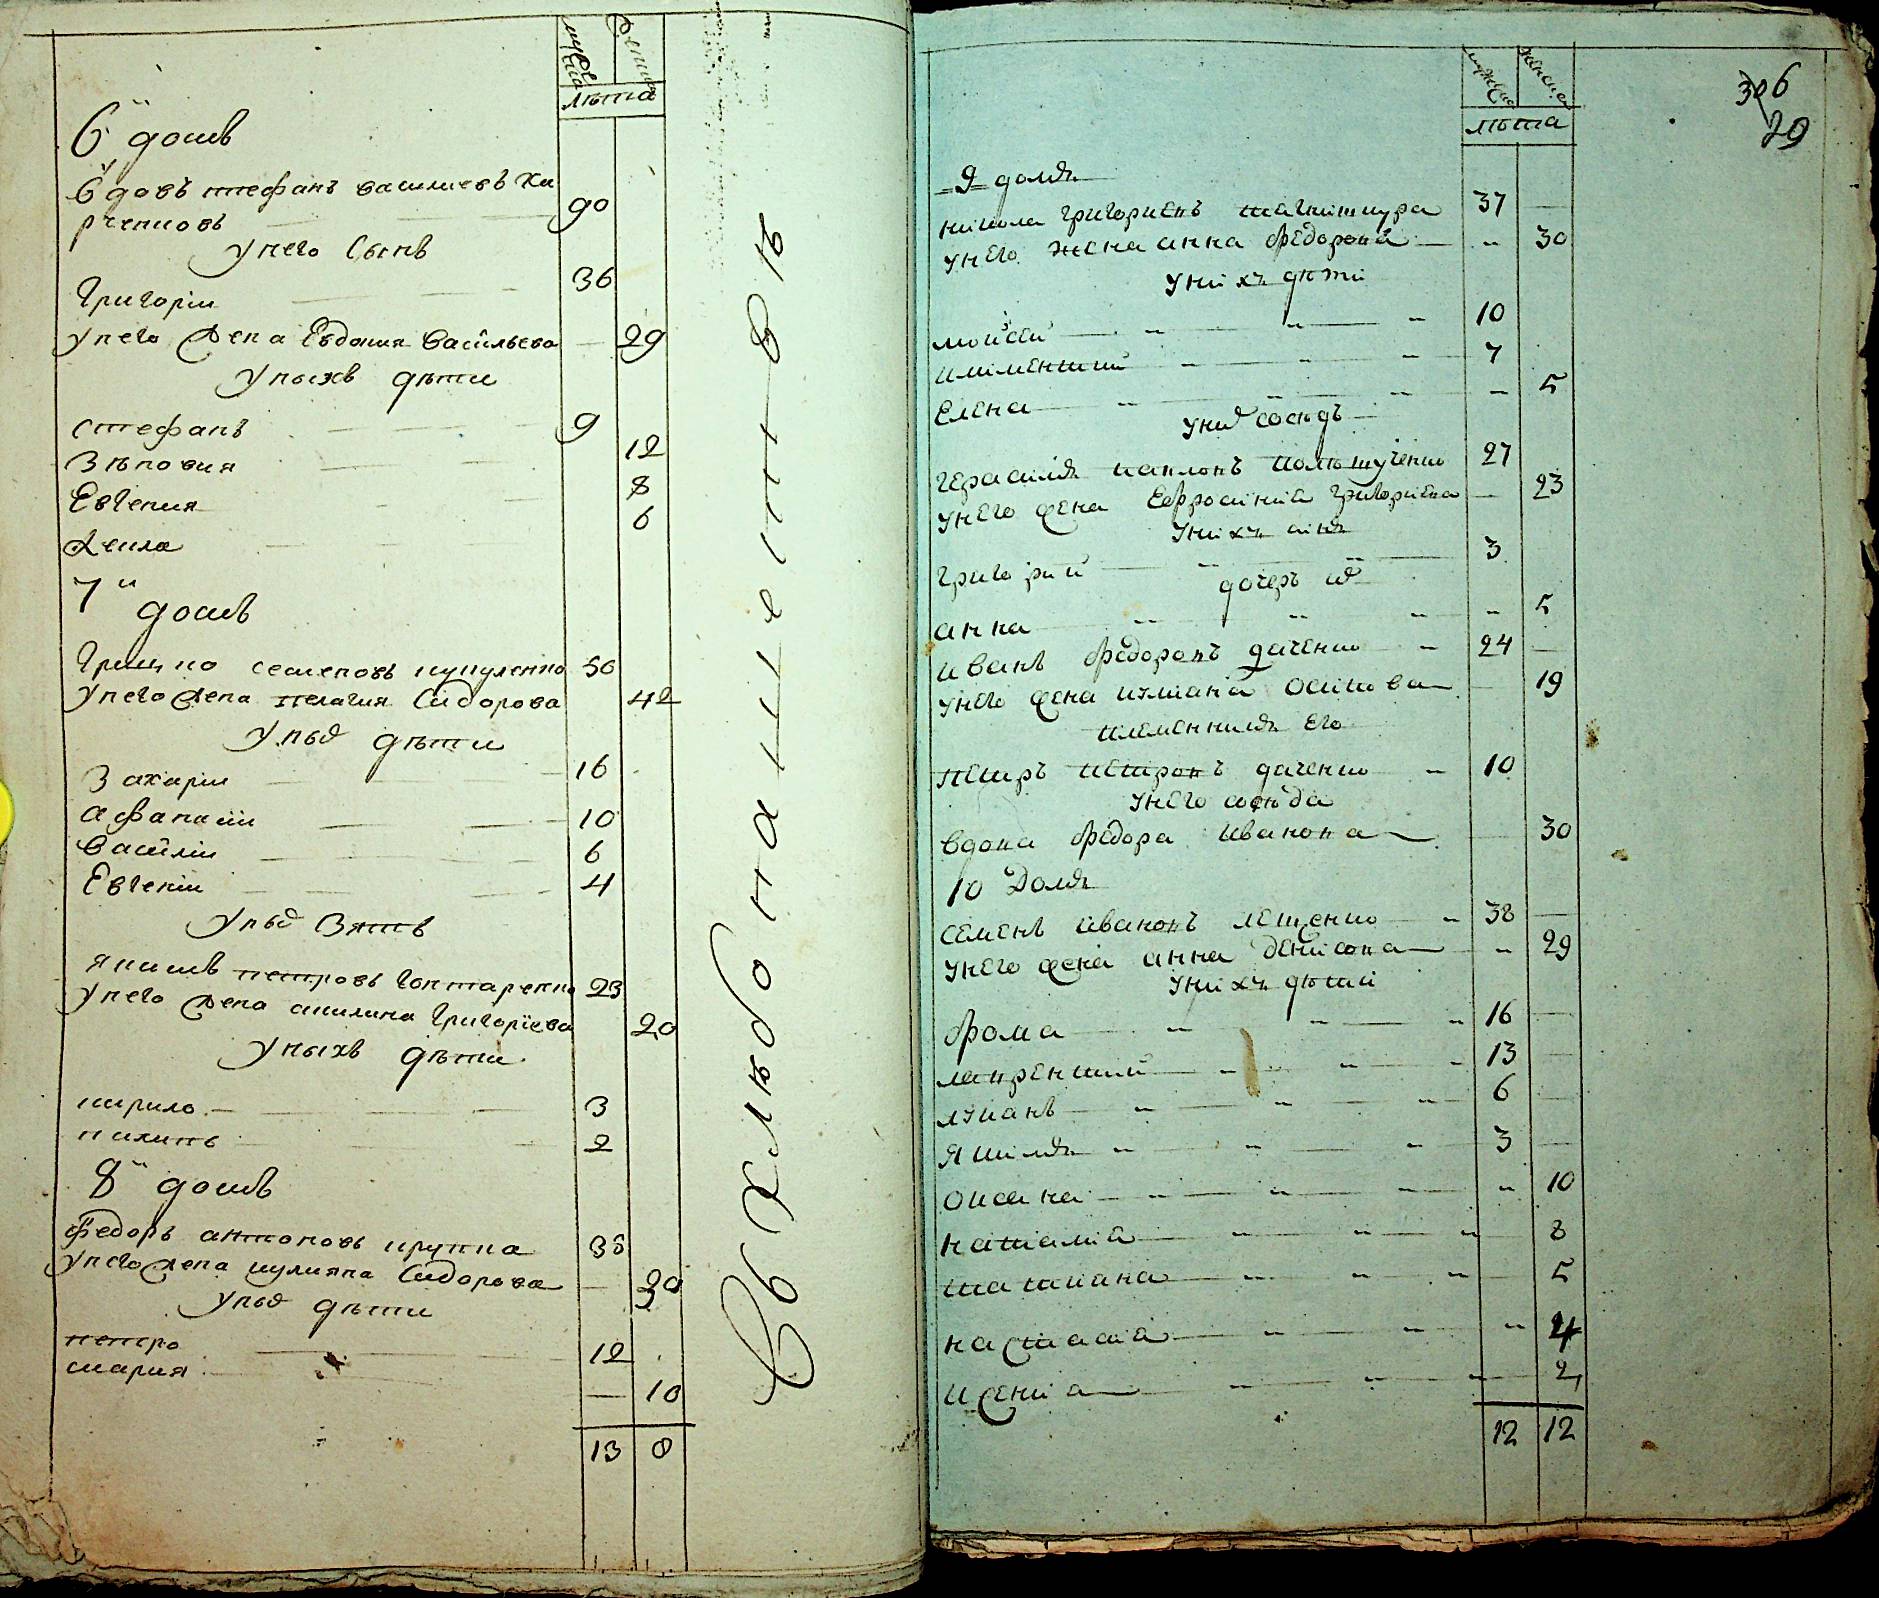 мужеска женска
лѣта
6й домъ
Вдовъ стефанъ василиевъ Ха
рченковъ 90
У него Сынъ
Григоріи 36
У него жена Евдокия Васильева 29
У ныхъ дѣти
стефанъ 9
Зѣновия 12
Евгения 8
6
7й домъ
семеновъ 50
У него жена пелагия Сидорова 42
У ныхъ дѣти
Захаріи 16
афанасіи 10
Василіи 6
Евгеніи 4
У ныхъ Зять
якимъ петровъ Гонтаренко 23
У него жена акилина Григоріева 20
У ныхъ дѣти
кирило 3
2
8й домъ
Федоръ антоновъ крупка 35
У него жена иулияна Сидорова 30
У ныхъ дѣти
петро 12
мария 10
13 8
мужеска женска
лѣта
306
29
9 домъ
никола григориевъ 37
у него жена анна федорова 30
у нихъ дѣти
моисей 10
7
Елена 5
у них сосѣдъ
герасимъ павловъ 27
у него жена Ефросиния григориева 23
у нихъ синъ
григорий 3
дочеръ их
анна 5
иванъ федоровъ даченко 24
у него жена улиана осипова 19
племенникъ его
петръ петровъ даченко 10
у него сосѣда
вдова федора иванова 30
10 Домъ
семенъ ивановъ лещенко 38
у него жена анна денисова 29
у нихъ дѣти
фома 16
лаврентий 13
лукианъ 6
якимъ 3
оксана 10
наталиа 8
татиана 5
настасиа 4
ксениа 2
12 12